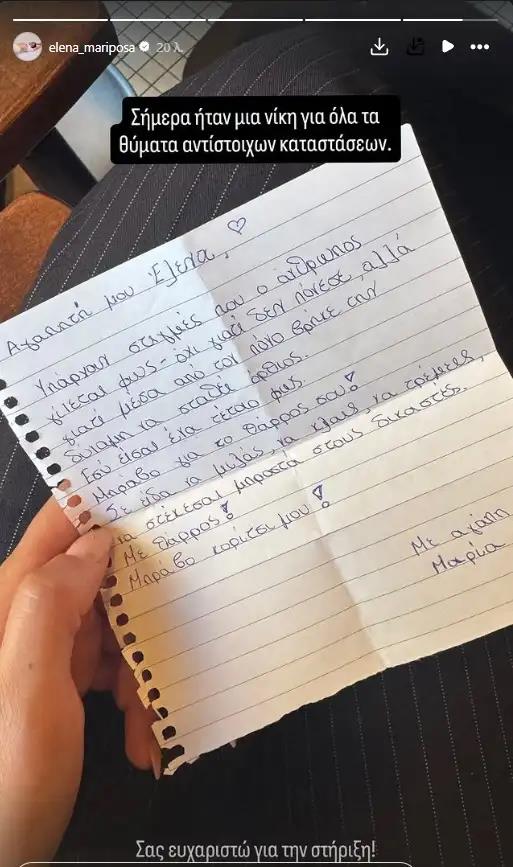 elena_mariposa 20 λ.
Σήμερα ήταν μια νίκη για όλα τα
θύματα αντίστοιχων καταστάσεων.
Αγαπητή μου Έλενα, ♡
Υπάρχουν στιγμές που ο άνθρωπος
γίνεται φως - όχι γιατί δεν πόνεσε, αλλά
γιατί μέσα από τον πόνο βρήκε την
δύναμη να σταθεί όρθιος.
Εσύ είσαι ένα τέτοιο φως.
Μπράβο για το θάρρος σου!
Σε είδα να μιλάς, να κλαις, να τρέμεις,
να στέκεσαι μπροστά στους δικαστές.
Με θάρρος!
Μπράβο κορίτσι μου!
Με αγάπη
Μαρίνα
Σας ευχαριστώ για την στήριξη!